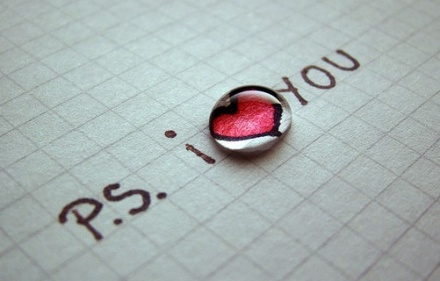 P.S. i YOU